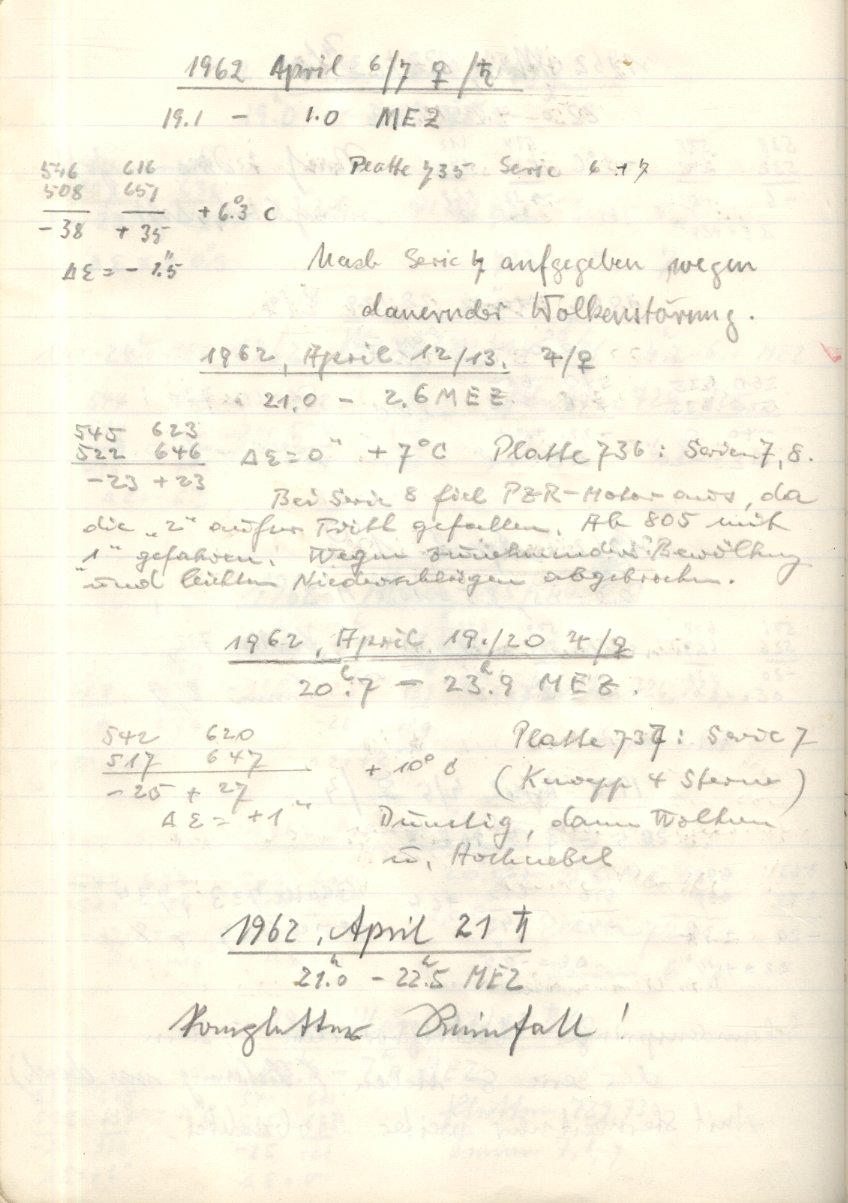 1962 April 6/7 ♀/♄
19.1 – 1.0 MEZ
546 616 Platte 735 Serie 6 + 7
508 651
-38 +35 +6.°3 C
Δε = - 1."5
Nach Serie 7 aufgegeben wegen
dauernder Wolkenstörung.
1962, April 12/13. ♃/♀
21.0 – 2.6 MEZ
545 623
522 646 Δε = 0" +7°C Platte 736 : Serien 7, 8.
-23 +23
Bei Serie 8 fiel PZR-Motor aus, da
die „2" gefallen. Ab 805 mit
„1" gefahren. Wegen zunehmender Bewölkung
und leichten Niederschlägen abgebrochen.
1962, April 19./20 ♃/♀
20.ʰ7 – 23.ʰ9 MEZ.
542 620 Platte 737 : Serie 7
517 647 +10° C (Knapp 4 Sterne)
-25 +27
Δε = +1" Dunstig, dann Wolken
u. Hochnebel
1962, April 21 ♄
21.ʰ0 – 22.ʰ5 MEZ
Kompletter Reinfall!